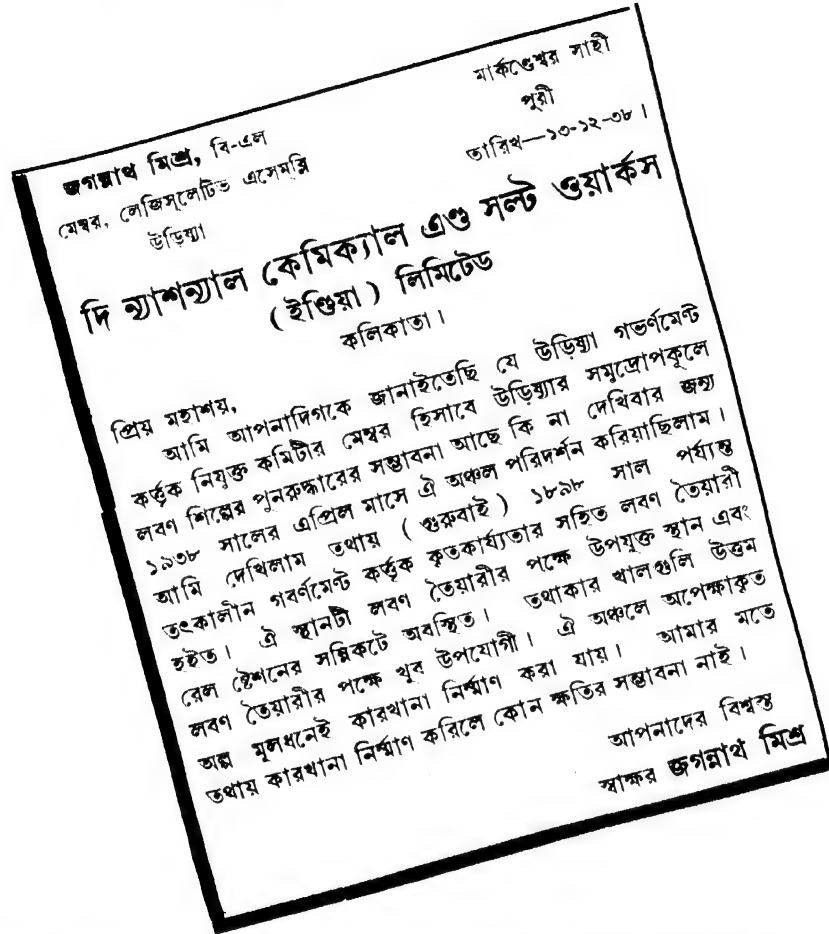 মার্কণ্ডেশ্বর সাহী
পুরী
তারিখ—১৩-১২-৩৮।
জগন্নাথ মিশ্র, বি-এল
মেম্বর, লেজিস্‌লেটিভ এসেমব্লি
উড়িষ্যা
দি ন্যাশন্যাল কেমিক্যাল এণ্ড সল্ট ওয়ার্কস
(ইণ্ডিয়া) লিমিটেড
কলিকাতা।
প্রিয় মহাশয়,
আমি আপনাদিগকে জানাইতেছি যে উড়িষ্যা গভর্ণমেন্ট
কর্ত্তৃক নিযুক্ত কমিটীর মেম্বর হিসাবে উড়িষ্যার সমুদ্রোপকূলে
লবণ শিল্পের পুনরুদ্ধারের সম্ভাবনা আছে কি না দেখিবার জন্য
১৯৩৮ সালের এপ্রিল মাসে ঐ অঞ্চল পরিদর্শন করিয়াছিলাম।
আমি দেখিলাম তথায় (গুরুবাই) ১৮৯৮ সাল পর্য্যন্ত
তৎকালীন গবর্ণমেন্ট কর্ত্তৃক কৃতকার্য্যতার সহিত লবণ তৈয়ারী
হইত। ঐ স্থানটী লবণ তৈয়ারীর পক্ষে উপযুক্ত স্থান এবং
রেল ষ্টেশনের সন্নিকটে অবস্থিত। তথাকার খালগুলি উত্তম
লবণ তৈয়ারীর পক্ষে খুব উপযোগী। ঐ অঞ্চলে অপেক্ষাকৃত
অল্প মূলধনেই কারখানা নির্ম্মাণ করা যায়। আমার মতে
তথায় কারখানা নির্ম্মাণ করিলে কোন ক্ষতির সম্ভাবনা নাই।
আপনাদের বিশ্বস্ত
স্বাক্ষর জগন্নাথ মিশ্র